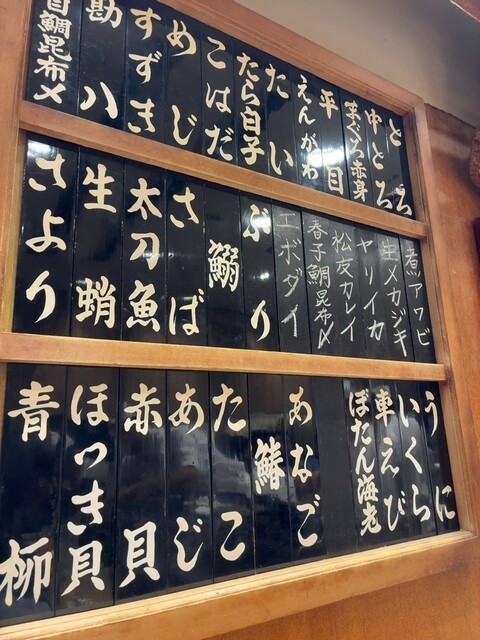 とろ
中とろ
まぐろ赤身
平目
えんがわ
たい
たら白子
こはだ
めじ
すずき
勘八
目鯛昆布〆
煮アワビ
生メカジキ
ヤリイカ
松皮カレイ
春子鯛昆布〆
エボダイ
ぶり
鰯
さば
太刀魚
生蛸
さより
うに
いくら
車えび
ぼたん海老
あなご
鰆
たこ
あじ
赤貝
ほっき貝
青柳